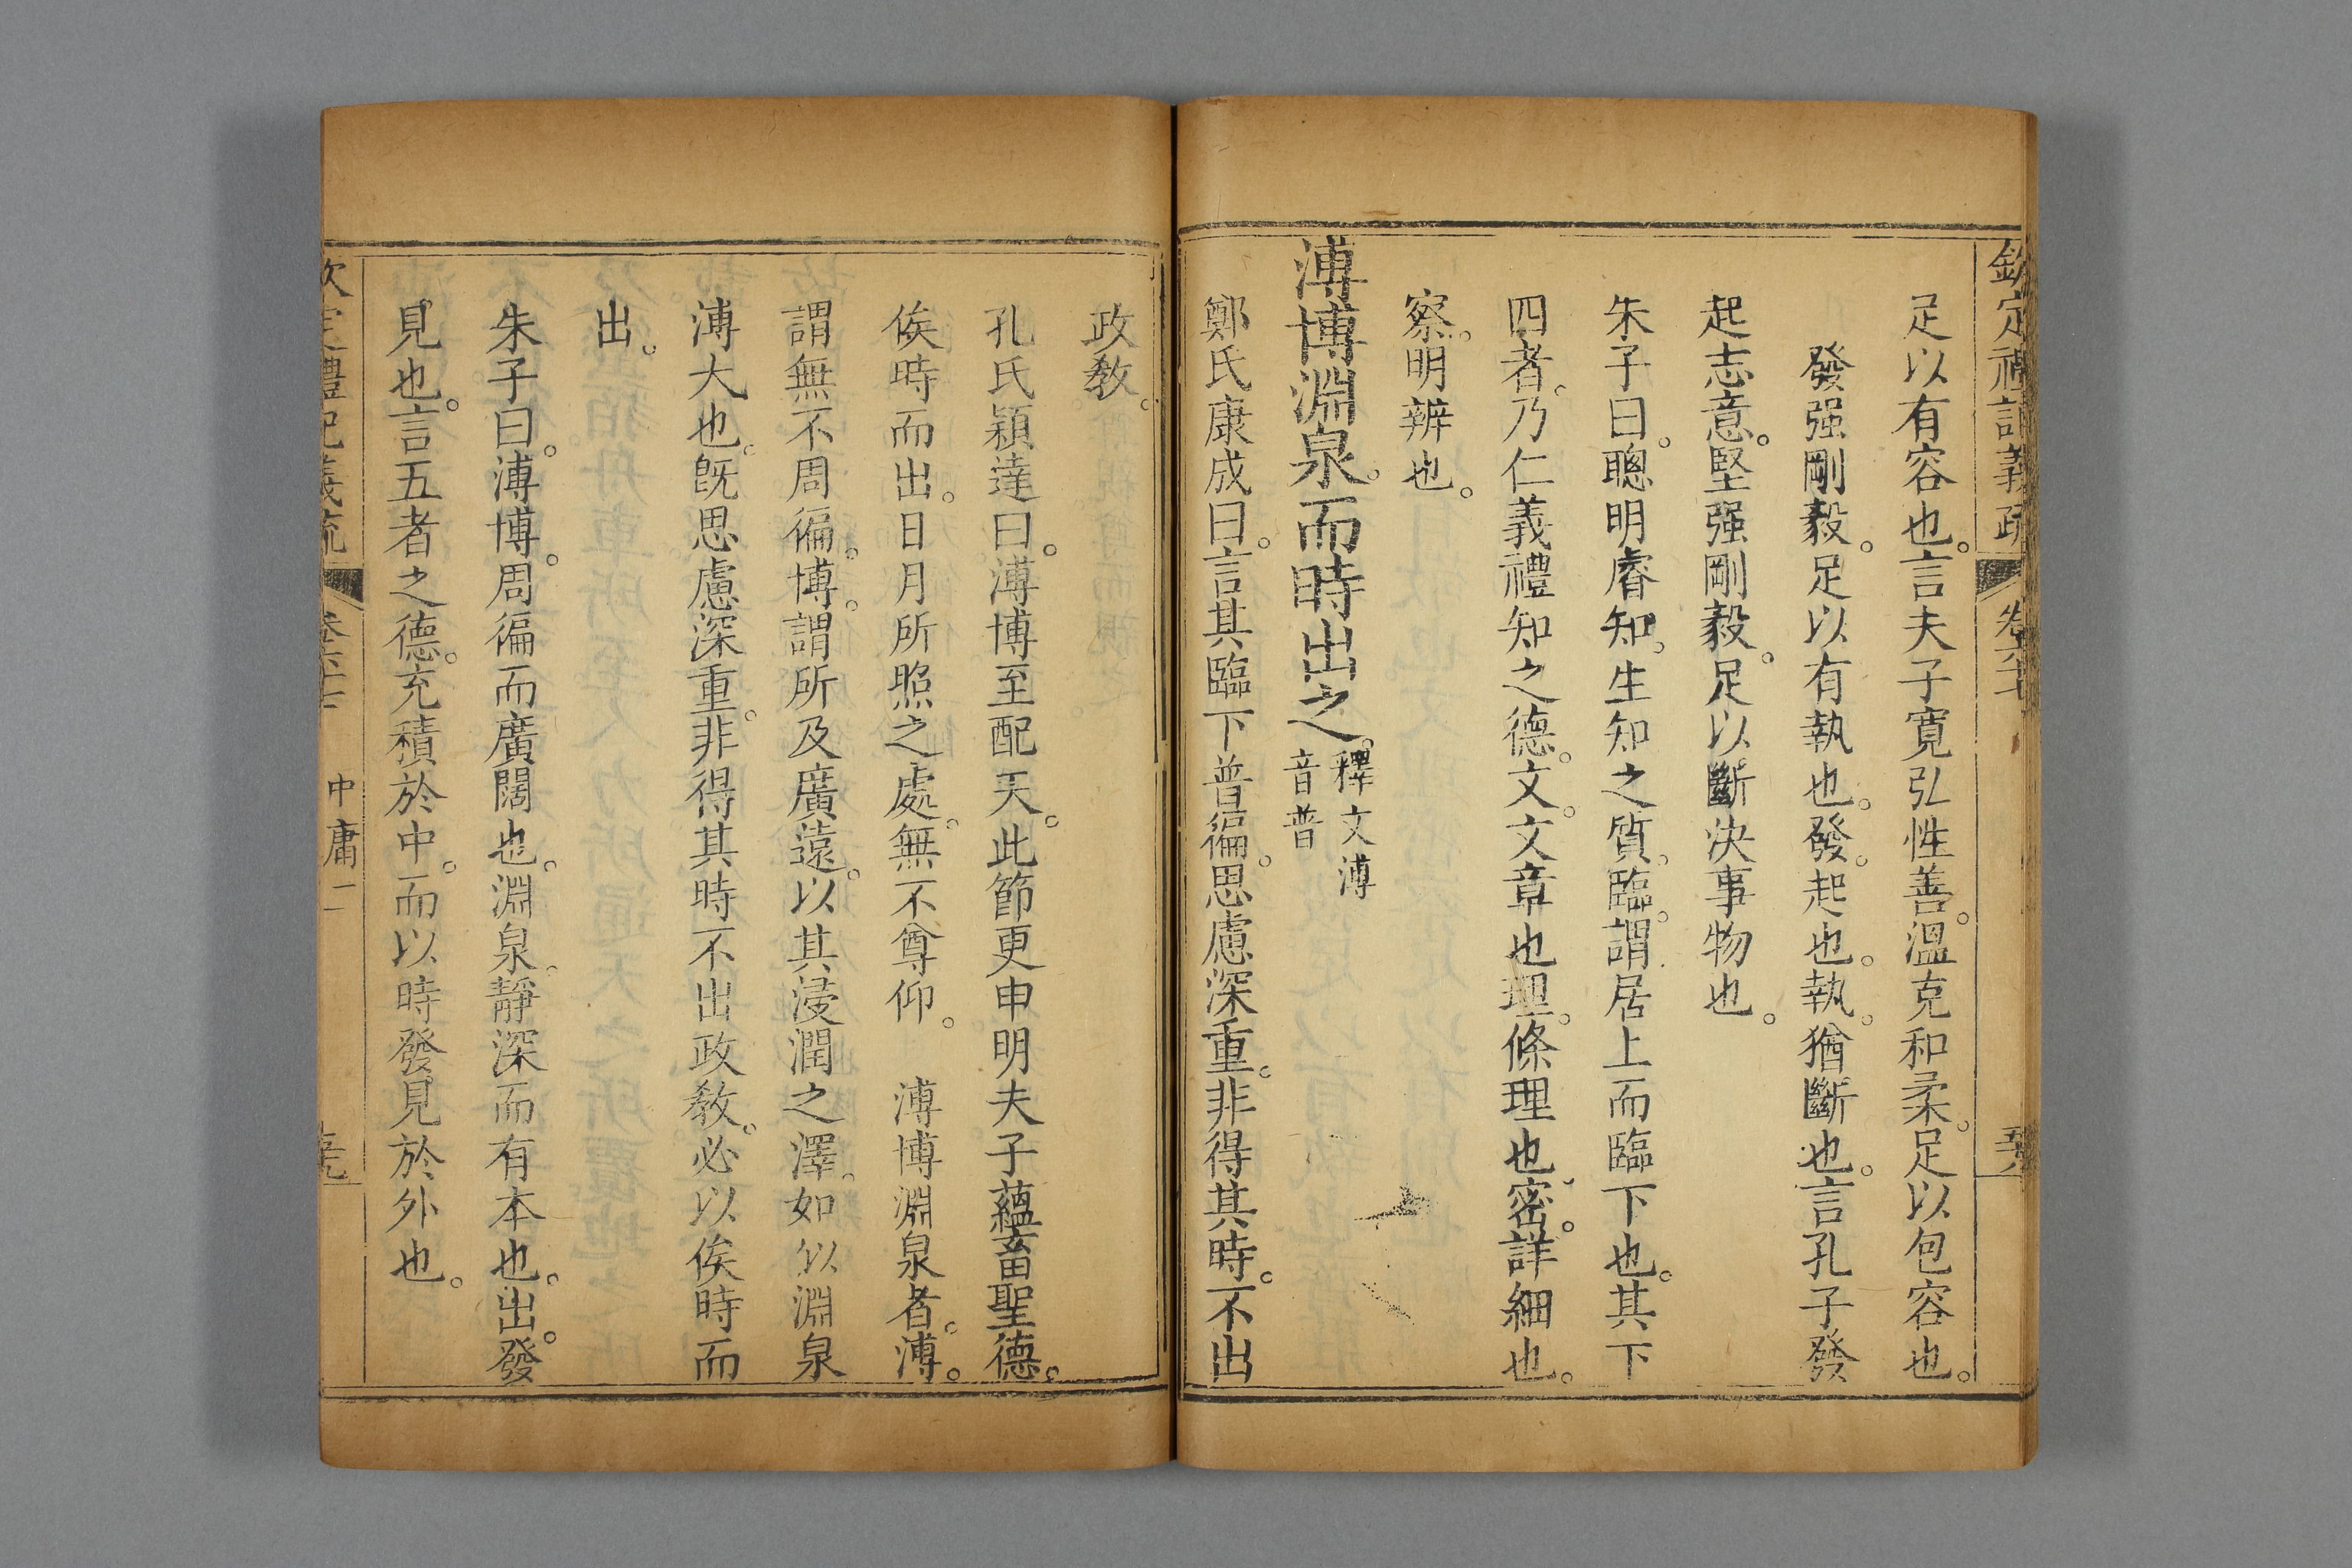 欽定禮記義疏 卷六十七
足以有容也。言夫子寬弘性善。溫克和柔。足以包容也。
發强剛毅。足以有執也。發。起也。執。猶斷也。言孔子發
起志意。堅强剛毅。足以斷決事物也。
朱子曰。聰明睿知。生知之質。臨。謂居上而臨下也。其下
四者。乃仁義禮知之德。文。文章也。理。條理也。密。詳細也。
察。明辨也。
溥博淵泉。而時出之。釋文溥
音普
鄭氏康成曰。言其臨下普徧。思慮深重。非得其時。不出
政教。
孔氏穎達曰。溥博至配天。此節更申明夫子蘊畜聖德。
俟時而出。日月所照之處。無不尊仰。 溥博淵泉者。溥。
謂無不周徧。博。謂所及廣遠。以其浸潤之澤。如似淵泉
溥大也。旣思慮深重。非得其時不出政教。必以俟時而
出。
朱子曰。溥博。周徧而廣闊也。淵泉。靜深而有本也。出。發
見也。言五者之德。充積於中。而以時發見於外也。
欽定禮記義疏 卷六十七 中庸二